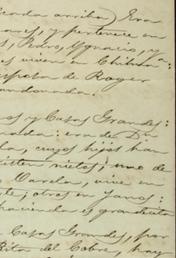 arriba) Era
y pertenece en
Pedro, Ygnacio, y
viven en Chihua:
esposa de Roger
abandonada.
os y Casas Grandes:
nada: era de Dn
la, cuyos hijos han
nietos; uno de
Varela, vive en
te; otros en Janos:
hacienda es gratuita
Casas Grandes, por
Rita del Cobre, hay